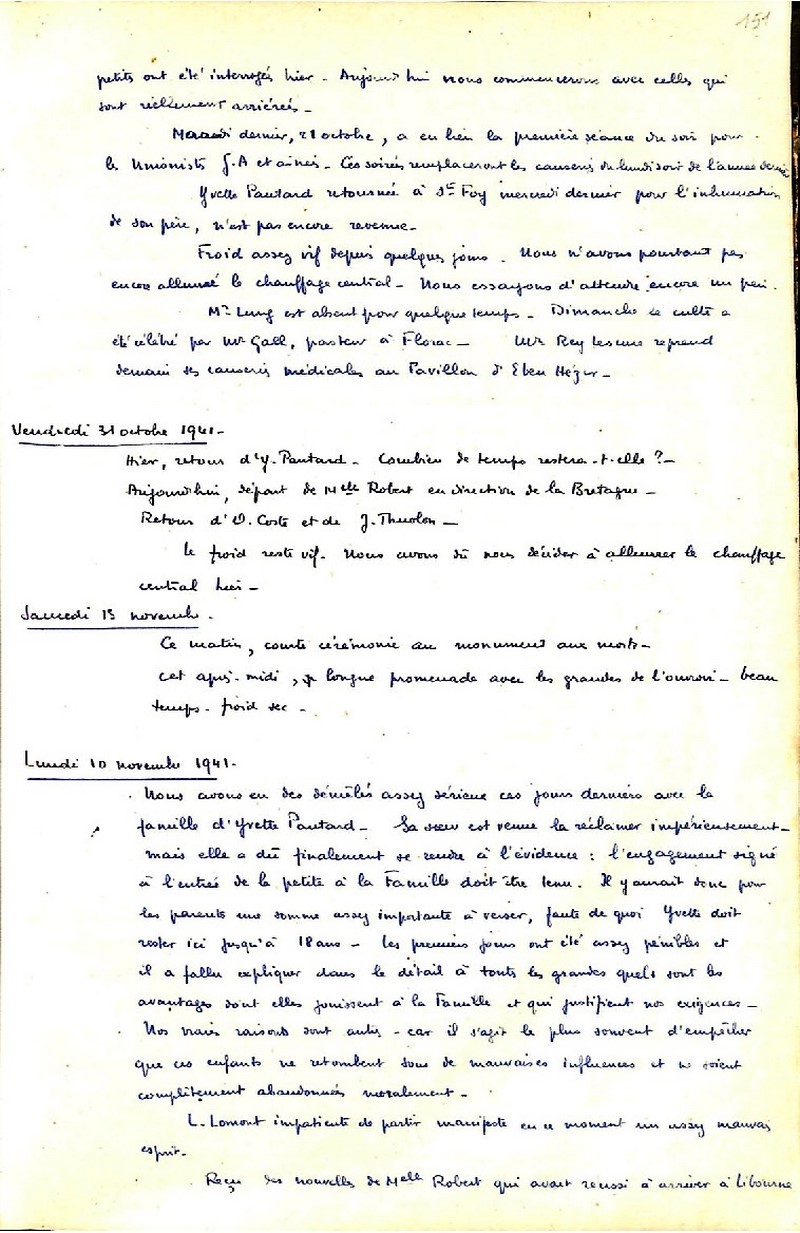 151
petits ont été interrogés hier - Aujourd'hui nous commencerons avec celles qui
sont réellement arriérées -
Mardi dernier, 21 octobre, a eu lieu la première séance du soir pour
les Unionistes J.A et aînées - Ces soirées remplaceront les causeries du lundi soir de l'année dernière
Yvette Pautard retournée à Ste Foy mercredi dernier pour l'inhumation
de son père, n'est pas encore revenue -
Froid assez vif depuis quelques jours. Nous n'avons pourtant pas
encore allumé le chauffage central - Nous essayons d'attendre encore un peu.
Mr Lung est absent pour quelque temps - Dimanche le culte a
été célébré par Mr Gall, pasteur à Florac - Mr Rey Lescure reprend
demain ses causeries médicales au Pavillon d'Eben Hézer -
Vendredi 31 octobre 1941 -
Hier, retour d'Y. Pautard - Combien de temps restera-t-elle ? -
Aujourd'hui, départ de Melle Robert en direction de la Bretagne -
Retour d'O. Coste et de J. Theolon -
Le froid reste vif. Nous avons dû nous décider à allumer le chauffage
central hier -
Samedi novembre.
Ce matin, courte cérémonie au monument aux morts -
cet après-midi, longue promenade avec les grandes de l'ouvroir - beau
temps - froid sec -
Lundi 10 novembre 1941 -
Nous avons eu des démêlés assez sérieux ces jours derniers avec la
famille d'Yvette Pautard - Sa sœur est venue la réclamer impérieusement -
mais elle a dû finalement se rendre à l'évidence : l'engagement signé
à l'entrée de la petite à la Famille doit être tenu. Il y aurait donc pour
les parents une somme assez importante à verser, faute de quoi Yvette doit
rester ici jusqu'à 18 ans - Les premiers jours ont été assez pénibles et
il a fallu expliquer dans le détail à toutes les grandes quels sont les
avantages dont elles jouissent à la Famille et qui justifient nos exigences -
Nos vraies raisons sont autres - car il s'agit le plus souvent d'empêcher
que ces enfants ne retombent sous de mauvaises influences et ne soient
complètement abandonnées moralement -
L. Lomont impatiente de partir manifeste en ce moment un assez mauvais
esprit -
Reçu des nouvelles de Melle Robert qui avait réussi à arriver à Libourne